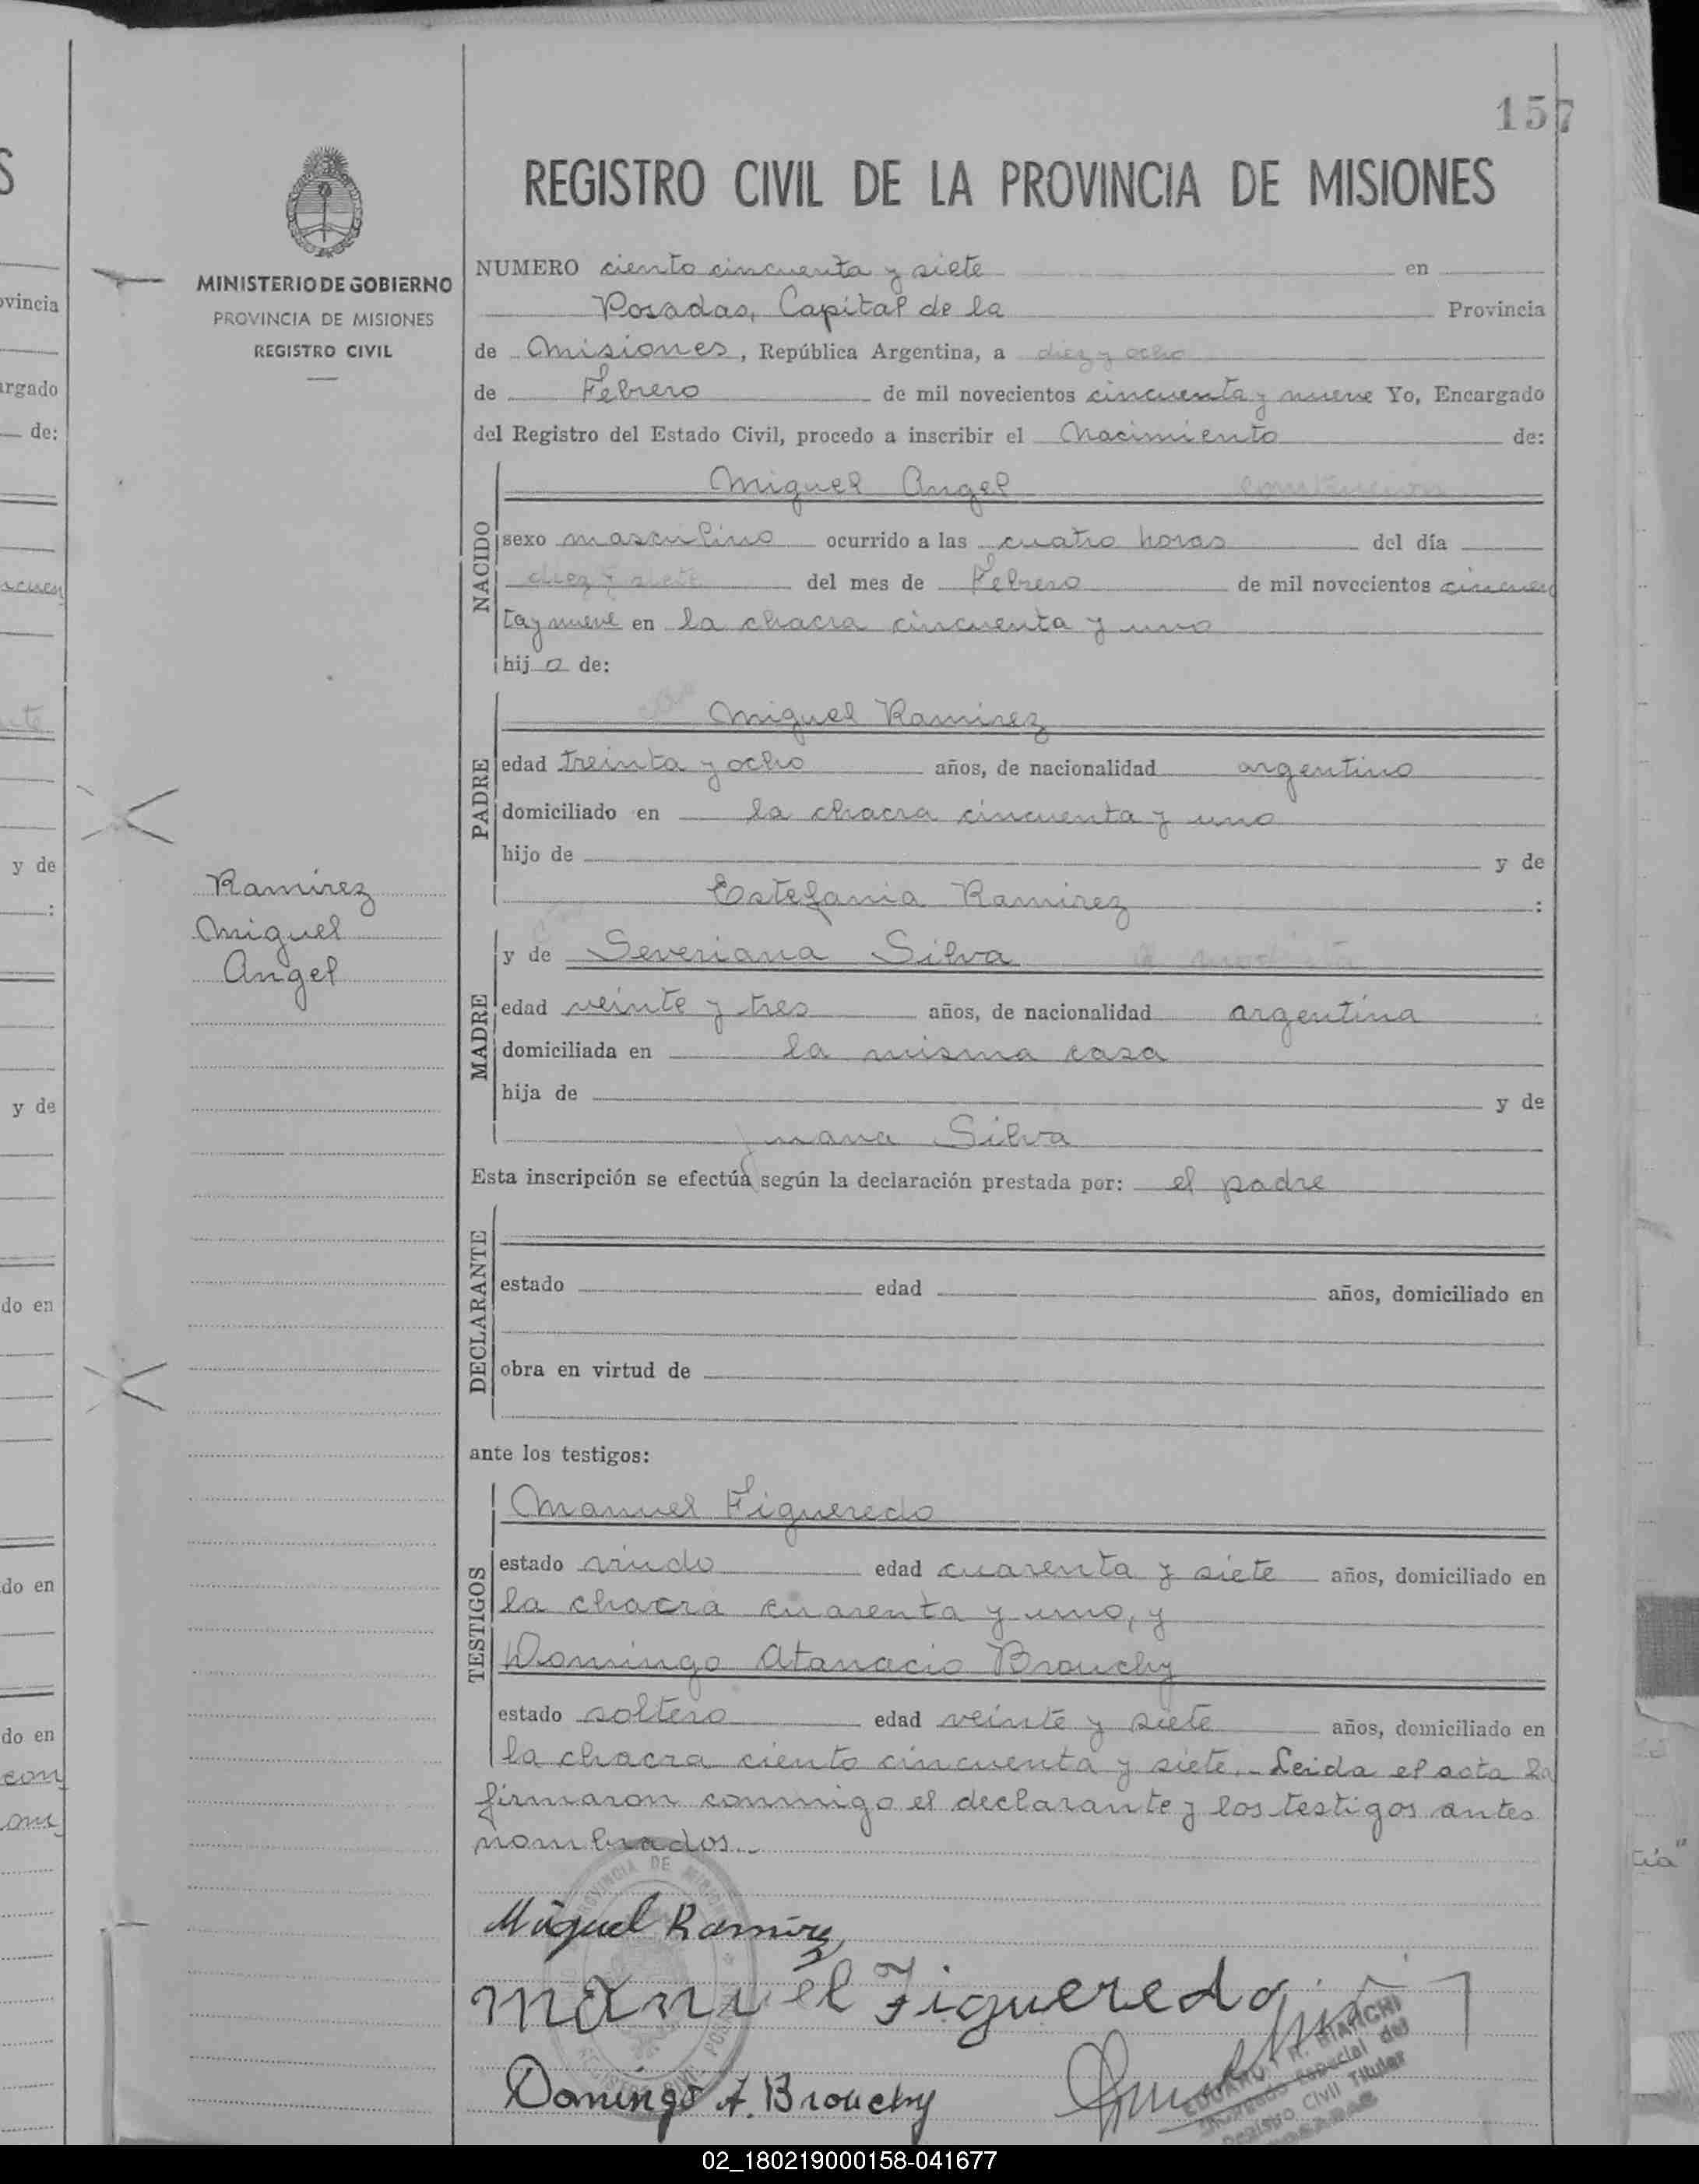 157
REGISTRO CIVIL DE LA PROVINCIA DE MISIONES
MINISTERIO DE GOBIERNO
PROVINCIA DE MISIONES
REGISTRO CIVIL
NUMERO ciento cincuenta y siete en
Posadas, Capital de la Provincia
de Misiones, República Argentina, a diez y ocho
de Febrero de mil novecientos cincuenta y nueve Yo, Encargado
del Registro del Estado Civil, procedo a inscribir el Nacimiento de:
NACIDO
Miguel Angel
sexo masculino ocurrido a las cuatro horas del día
diez y siete del mes de Febrero de mil novecientos cincuen
ta y nueve en la chacra cincuenta y uno
hij o de:
PADRE
Miguel Ramirez
edad treinta y ocho años, de nacionalidad argentino
domiciliado en la chacra cincuenta y uno
hijo de y de
Estefania Ramirez :
Ramirez
Miguel
Angel
MADRE
y de Severiana Silva
edad veinte y tres años, de nacionalidad argentina
domiciliada en la misma casa
hija de y de
Juana Silva
Esta inscripción se efectúa según la declaración prestada por: el padre
DECLARANTE
estado edad años, domiciliado en
obra en virtud de
ante los testigos:
TESTIGOS
Manuel Figueredo
estado viudo edad cuarenta y siete años, domiciliado en
la chacra cuarenta y uno, y
Domingo Atanacio Brouchy
estado soltero edad veinte y siete años, domiciliado en
la chacra ciento cincuenta y siete.- Leida el acta la
firmaron conmigo el declarante y los testigos antes
nombrados.-
Miguel Ramirez
Manuel Figueredo
Domingo A. Brouchy
R. BIANCHI
Especial del
Registro Civil Titular
POSADAS
vincia
argado
de:
y de
y de
do en
do en
do en
02_180219000158-041677